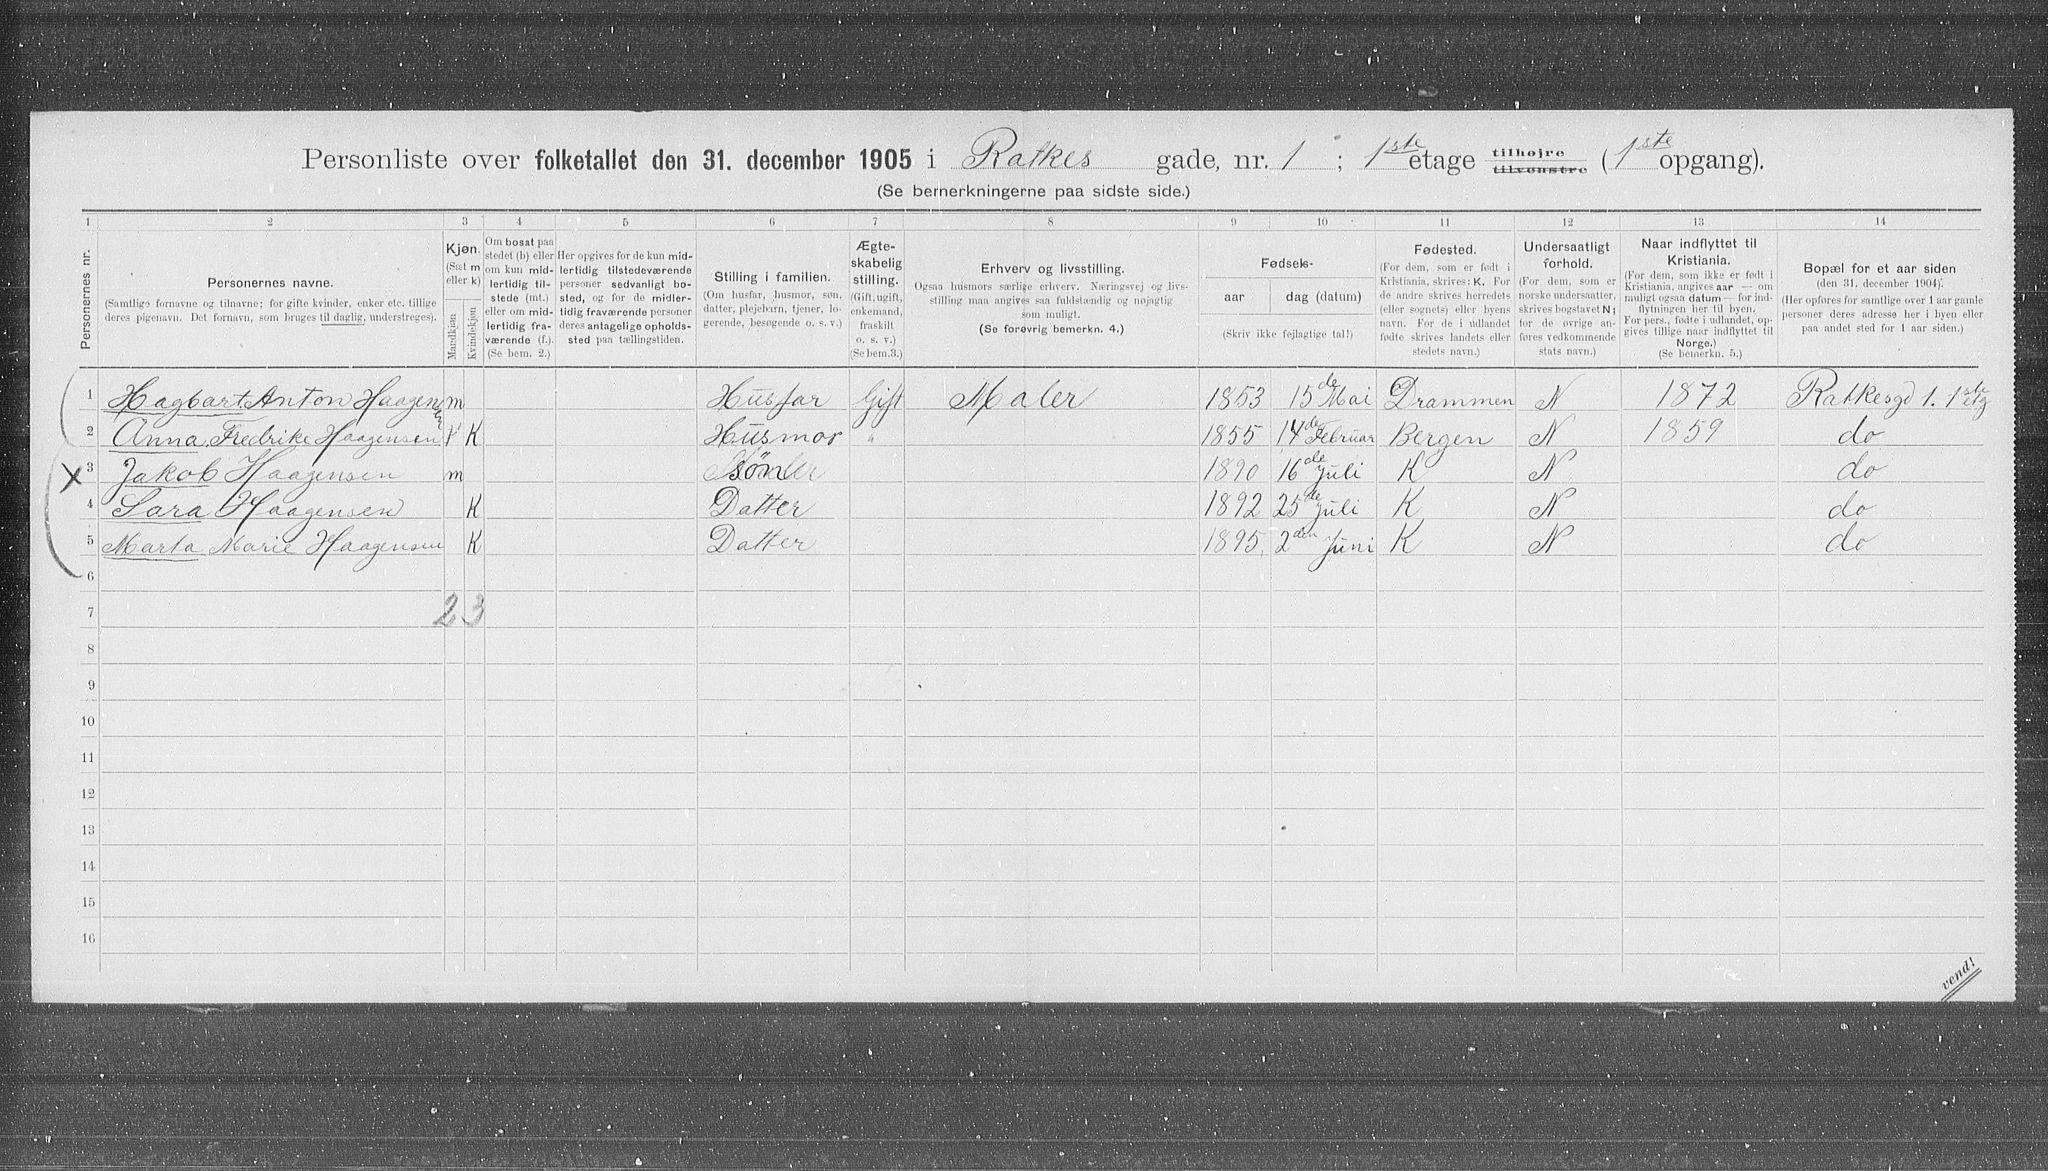 Personliste over folketallet den 31. december 1905 i Ratkes gade, nr. 1 ; 1ste etage tilhøjre tilvenstre (1ste opgang).
(Se bemerkningerne paa sidste side.)
1 2 3 4 5 6 7 8 9 10 11 12 13 14
Personernes nr.
Personernes navne.
(Samtlige fornavne og tilnavne; for gifte kvinder, enker etc. tillige
deres pigenavn. Det fornavn, som bruges til daglig, understreges).
Kjøn.
(Sæt m
eller k)
Mandkjøn
Kvindekjøn.
Om bosat paa
stedet (b) eller
om kun mid-
lertidig til-
stede (mt.)
eller om mid-
lertidig fra-
værende (f.).
(Se bem. 2.)
Her opgives for de kun mid-
lertidig tilstedeværende
personer sedvanligt bo-
sted, og for de midler-
tidig fraværende personer
deres antagelige opholds-
sted paa tællingstiden.
Stilling i familien.
(Om husfar, husmor, søn,
datter, plejebarn, tjener, lo-
gerende, besøgende o. s. v.)
Ægte-
skabelig
stilling.
(Gift, ugift,
enkemand,
fraskilt
o. s. v.)
(Se bem.3.)
Erhverv og livsstilling.
Ogsaa husmors særlige erhverv. Næringsvej og livs-
stilling maa angives saa fuldstændig og nøjagtig
som muligt.
(Se forøvrig bemerkn. 4.)
Fødsels-
aar dag (datum)
(Skriv ikke fejlagtige tal!)
Fødested.
(For dem, som er født i
Kristiania, skrives: K. For
de andre skrives herredets
(eller sognets) eller byens
navn. For de i udlandet
fødte skrives landets eller
stedets navn.)
Undersaatligt
forhold.
(For dem, som er
norske undersaatter,
skrives bogstavet N;
for de øvrige an-
føres vedkommende
stats navn.)
Naar indflyttet til
Kristiania.
(For dem, som ikke er født i
Kristiania, angives aar — om
muligt ogsaa datum — for ind-
flytningen her til byen.
For pers., fødte i udlandet, op-
gives tillige naar indflyttet til
Norge.)
(Se bemerkn. 5.)
Bopæl for et aar siden
(den 31. december 1904).
(Her opføres for samtlige over 1 aar gamle
personer deres adresse her i byen eller
paa andet sted for 1 aar siden.)
1 Hagbart Anton Haagensen m Husfar Gift Maler 1853 15de Mai Drammen N 1872 Ratkesgd 1. 1ste etg
2 Anna Fredrike Haagensen K Husmor " 1855 14de Februar Bergen N 1859 do
X 3 Jakob Haagensen m Søn 1890 16de Juli K N do
4 Sara Haagensen K Datter 1892 25de Juli K N do
5 Marta Marie Haagensen K Datter 1895 2den Juni K N do
6
7 2 3
8
9
10
11
12
13
14
15
16
vend!